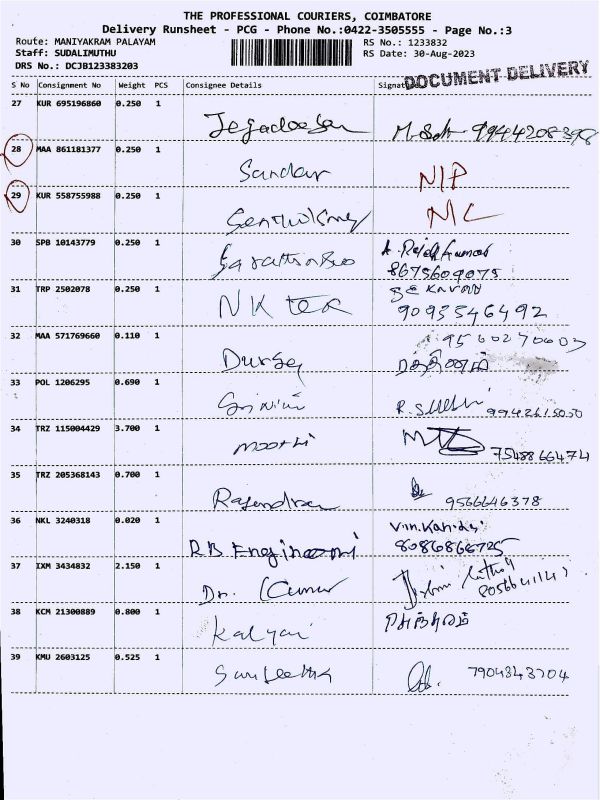 THE PROFESSIONAL COURIERS, COIMBATORE
Delivery Runsheet - PCG - Phone No.:0422-3505555 - Page No.:3
Route: MANIYAKRAM PALAYAM RS No.: 1233832
Staff: SUDALIMUTHU RS Date: 30-Aug-2023
DRS No.: DCJB123383203
DOCUMENT DELIVERY
S No Consignment No Weight PCS Consignee Details Signat
27 KUR 695196860 0.250 1
Jegadeesan 9944208398
28 MAA 861181377 0.250 1
Sundar N/P
29 KUR 558755988 0.250 1
N/C
30 SPB 10143779 0.250 1
8675609075
31 TRP 2502078 0.250 1
NK tex 9095546492
32 MAA 571769660 0.110 1
9560270603
Durga
33 POL 1206295 0.690 1
9942615050
34 TRZ 115004429 3.700 1
moorthi 7548866474
35 TRZ 205368143 0.700 1
Rajendran 9566646378
36 NKL 3240318 0.020 1
RB 8086866725
37 IXM 3434832 2.150 1
Dr. Kumar
38 KCM 21300889 0.800 1
Kalyani
39 KMU 2603125 0.525 1
Sangeetha 7904343704